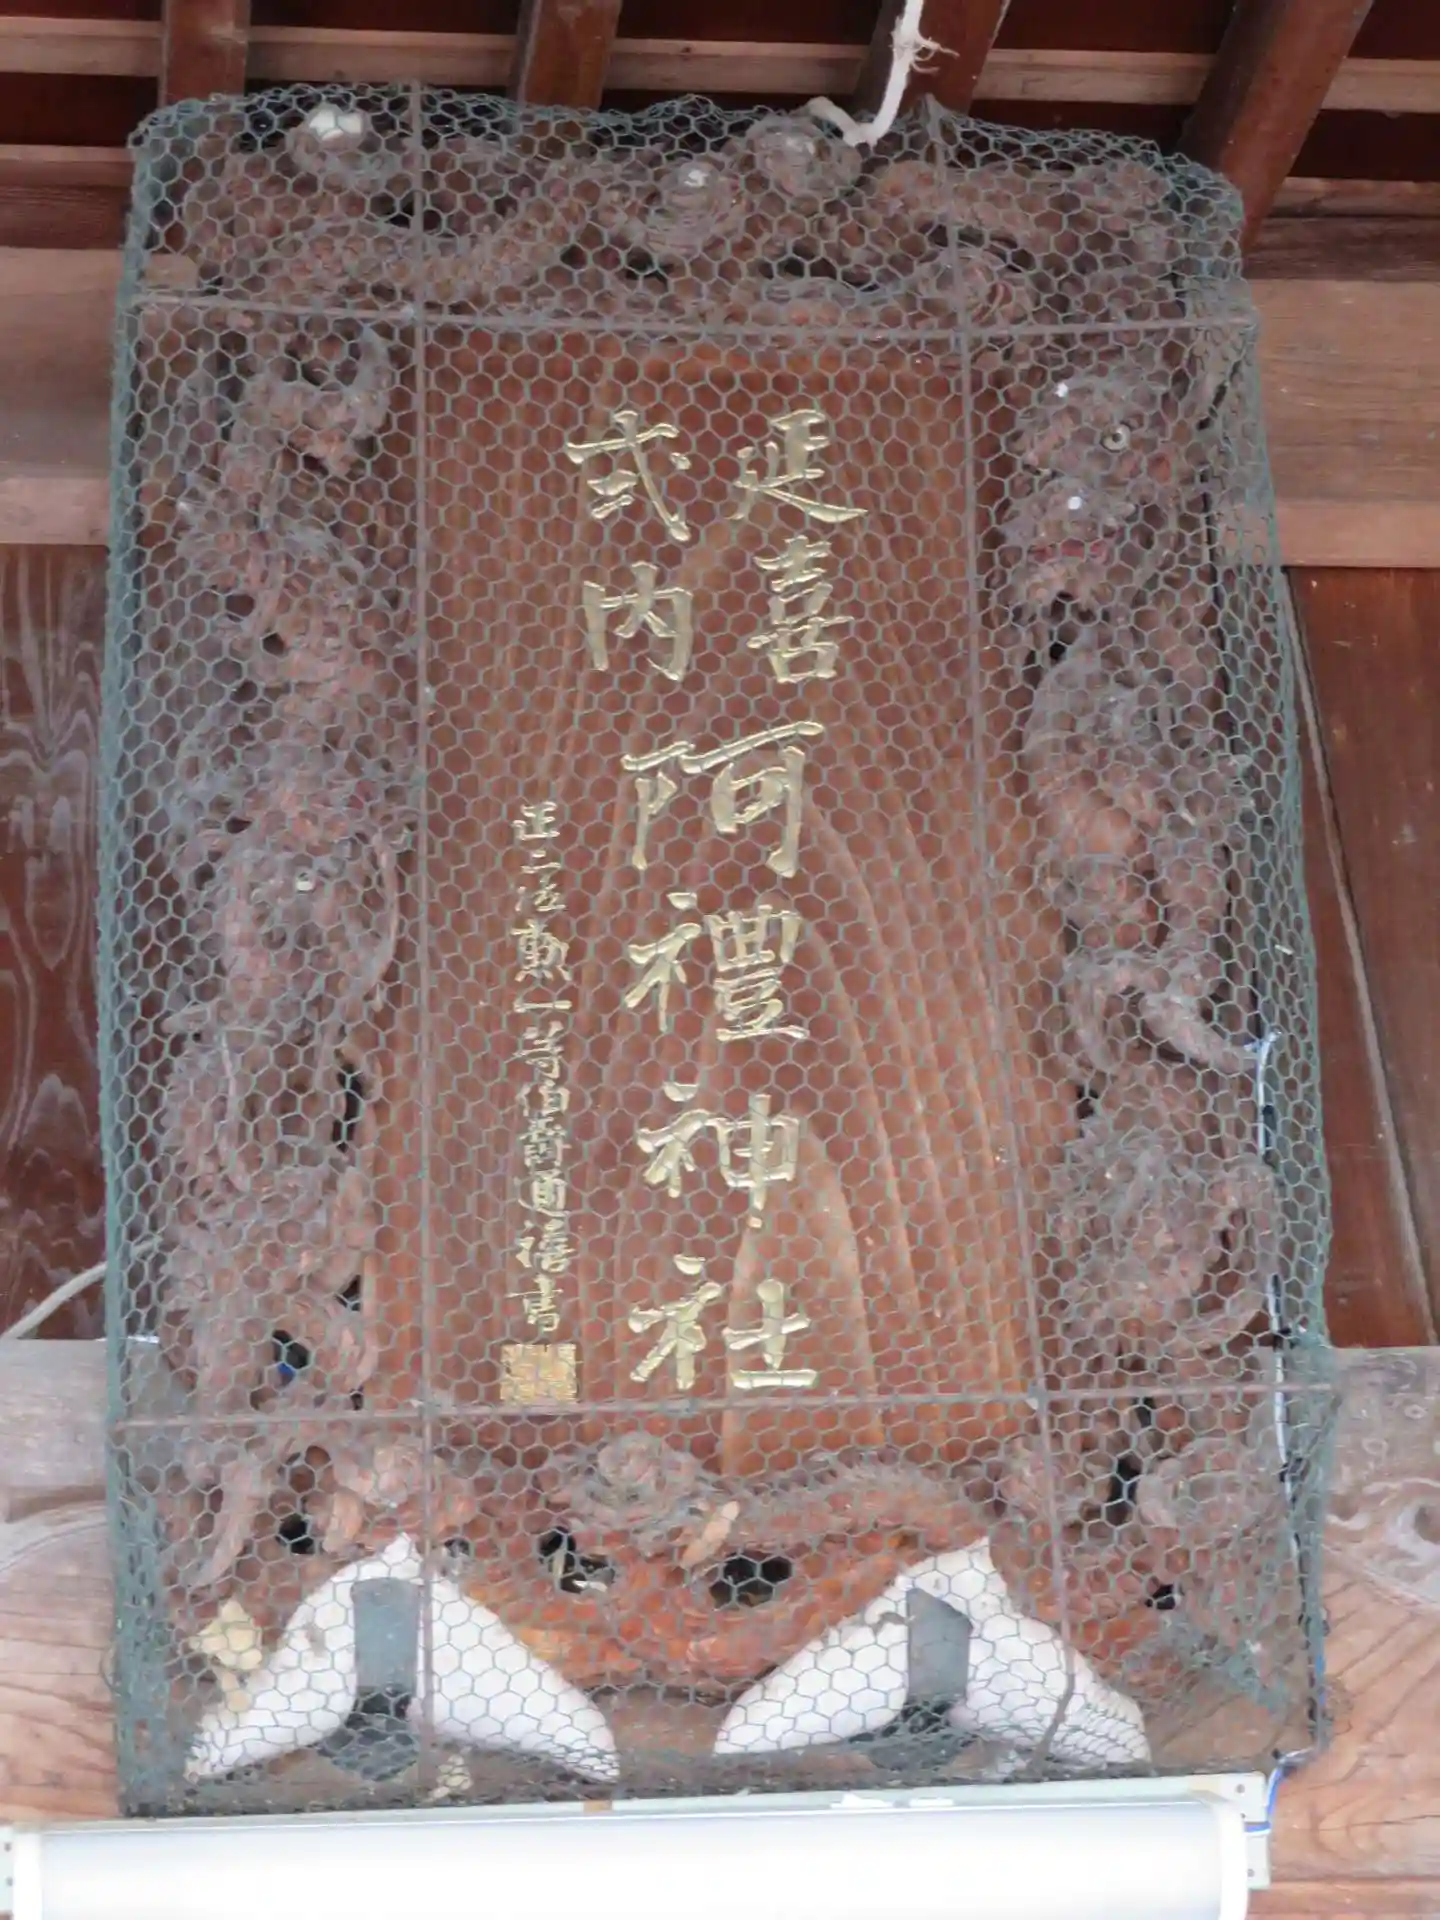 延喜
式内
阿禮神社
正二位勲一等伯爵通禧書